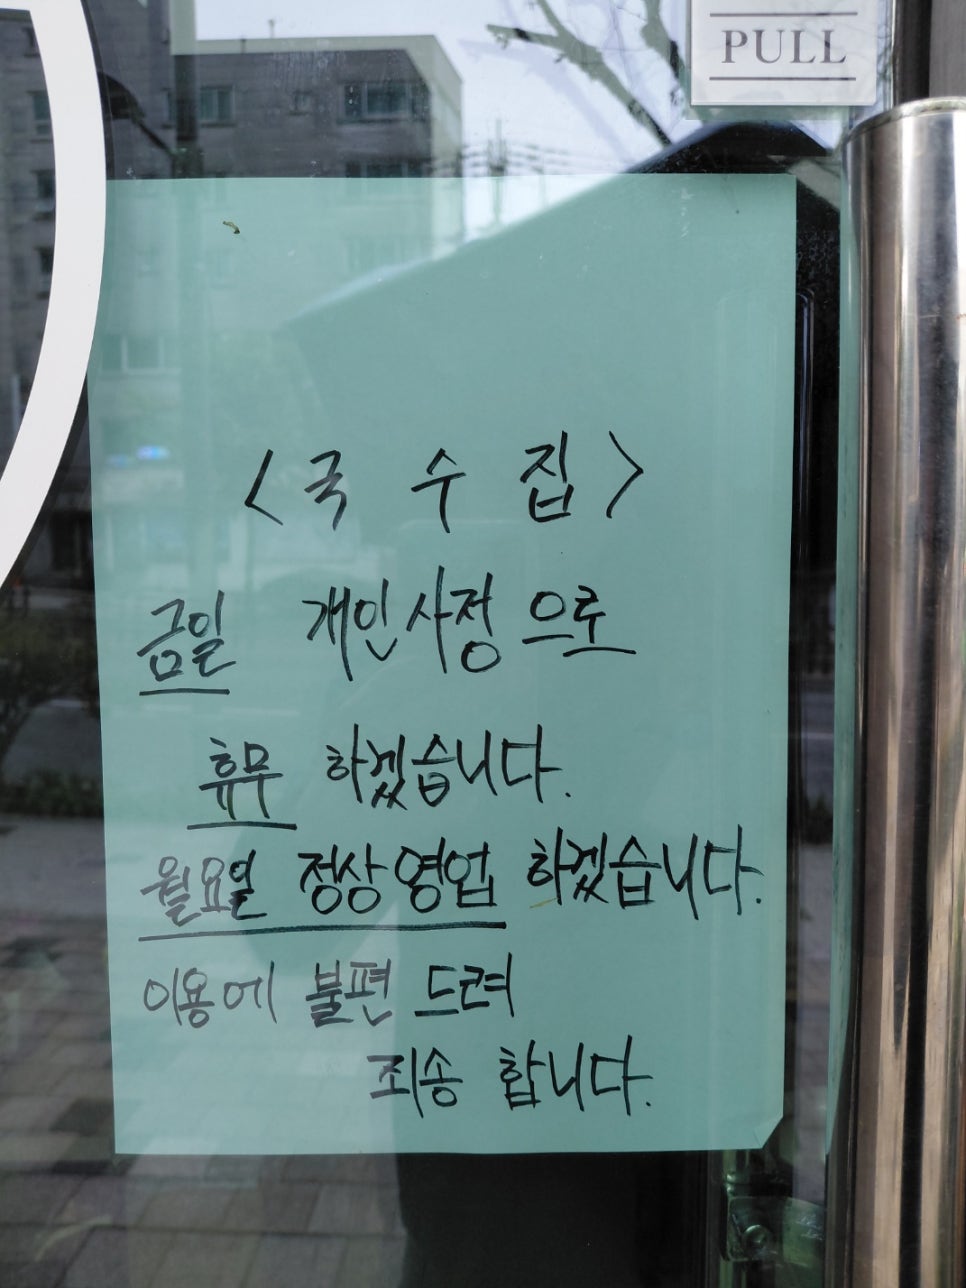 PULL
<국수집>
금일 개인사정으로
휴무 하겠습니다.
월요일 정상영업 하겠습니다.
이용에 불편 드려
죄송 합니다.